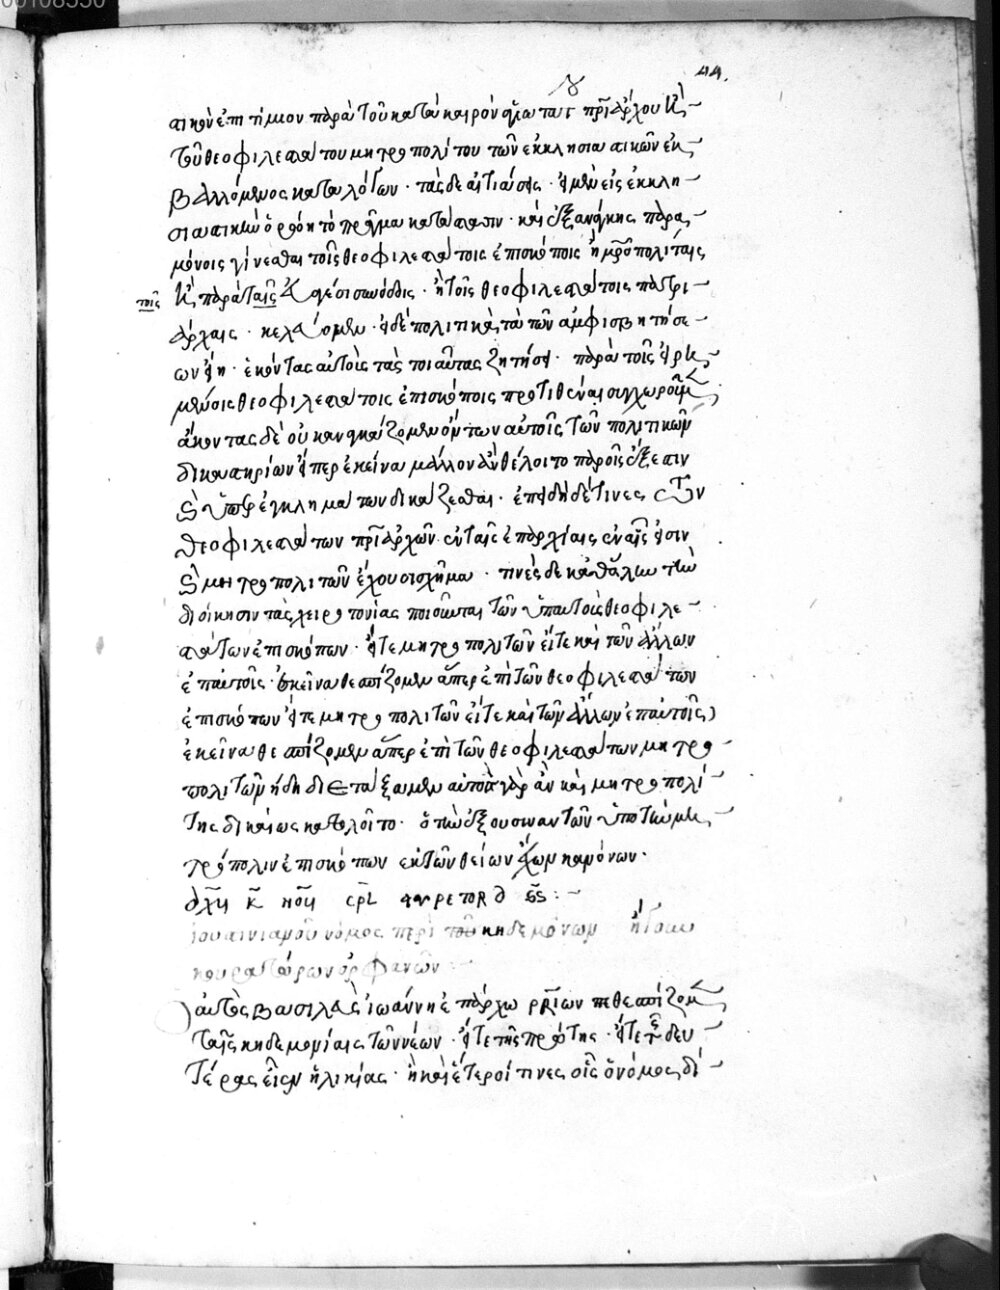 00108550
44.
λγ
ατικὸν ἐπιτίμιον παρὰ τοῦ κατὰ καιρὸν ἁγιωτάτ πριάρχου κ
τοῦ θεοφιλεστάτου μητροπολίτου τῶν ἐκκλησιαστικῶν ἐκ
βαλλόμενος καταλόγων · τὰς δὲ αἰτιάσεις · εἰ μὲν εἰς ἐκκλη
σιαστικὴν ὁρᾷ τὸ πρᾶγμα κατάστασιν · καὶ ἐξανάγκης παρὰ
μόνοις γίνεσθαι τοῖς θεοφιλεστάτοις ἐπισκόποις ἢ μητροπολίταις
τοῖς
κ παρὰ ταῖς ἁγίαις συνόδοις · ἢ τοῖς θεοφιλεστάτοις πατρι
άρχαις · κελεύομεν · εἰ δὲ πολιτικὰ τὰ τῶν ἀμφισβητήσε
ων εἴη · ἑκόντας αὐτοὺς τὰς τοιαύτας ζητήσεις · παρὰ τοῖς εἰρη
μένοις θεοφιλεστάτοις ἐπισκόποις προτιθέναι συγχωροῦμ
ἄκοντας δὲ οὐκ ἀναγκάζομεν ὄντων αὐτοῖς τῶν πολιτικῶν
δικαστηρίων εἴπερ ἐκεῖνα μᾶλλον ἂν θέλοιτο παρ οἷς ἔξεστιν
κ ὑπὲρ ἐγκλημάτων δικάζεσθαι · ἐπειδὴ δέ τινες τῶν
θεοφιλεστάτων πριαρχῶν ἐν ταῖς ἐπαρχίαις ἐν αἷς εἰσιν
κ μητροπολιτῶν ἔχουσι σχῆμα · τινὲς δὲ καθ ὅλην τὴν
διοίκησιν τὰς χειροτονίας ποιοῦνται τῶν ὑπ αὐτοὺς θεοφιλε
στάτων ἐπισκόπων · εἴτε μητροπολιτῶν εἴτε καὶ τῶν ἄλλων
ἐπ αὐτοῖς · ἐκεῖνα θεσπίζομεν ἅπερ ἐπὶ τῶν θεοφιλεστάτων
ἐπισκόπων εἴτε μητροπολιτῶν εἴτε καὶ τῶν ἄλλων ἐπ αὐτοῖς)
ἐκεῖνα θεσπίζομεν ἅπερ ἐπὶ τῶν θεοφιλεστάτων μητρο
πολιτῶν ἤδη διεταξάμεν αὐτὸς γὰρ ἂν καὶ μητροπολί
της δικαίως καλοῖτο · ὁ τὴν ἐξουσίαν τῶν ὑπὸ τὴν μη
τρόπολιν ἐπισκόπων ἐκ τῶν θείων ἔχων κανόνων ·
ἰουστινιανοῦ νόμος περὶ τοῦ κηδεμόνων ἤτοι
κουρατώρων ὀρφανῶν
αὐτὸς βασιλεὺς ἰωάννη ἐπάρχω πραιτωρίων θεσπίζομ
ταῖς κηδεμονίαις τῶν νέων · εἴτε τῆς πρώτης · εἴτε τῆς δευ
τέρας εἶεν ἡλικίας · ἢ καὶ ἕτεροί τινες οἷς ὁ νόμος δί